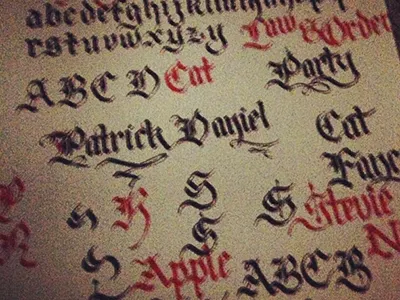 abcdefghijklmn
rstuvwxyzy Law & Order
A B C D Cat Party
Patrick Daniel Cat
S Fanc
s K S Stevie
R S N
S Apple ABCB